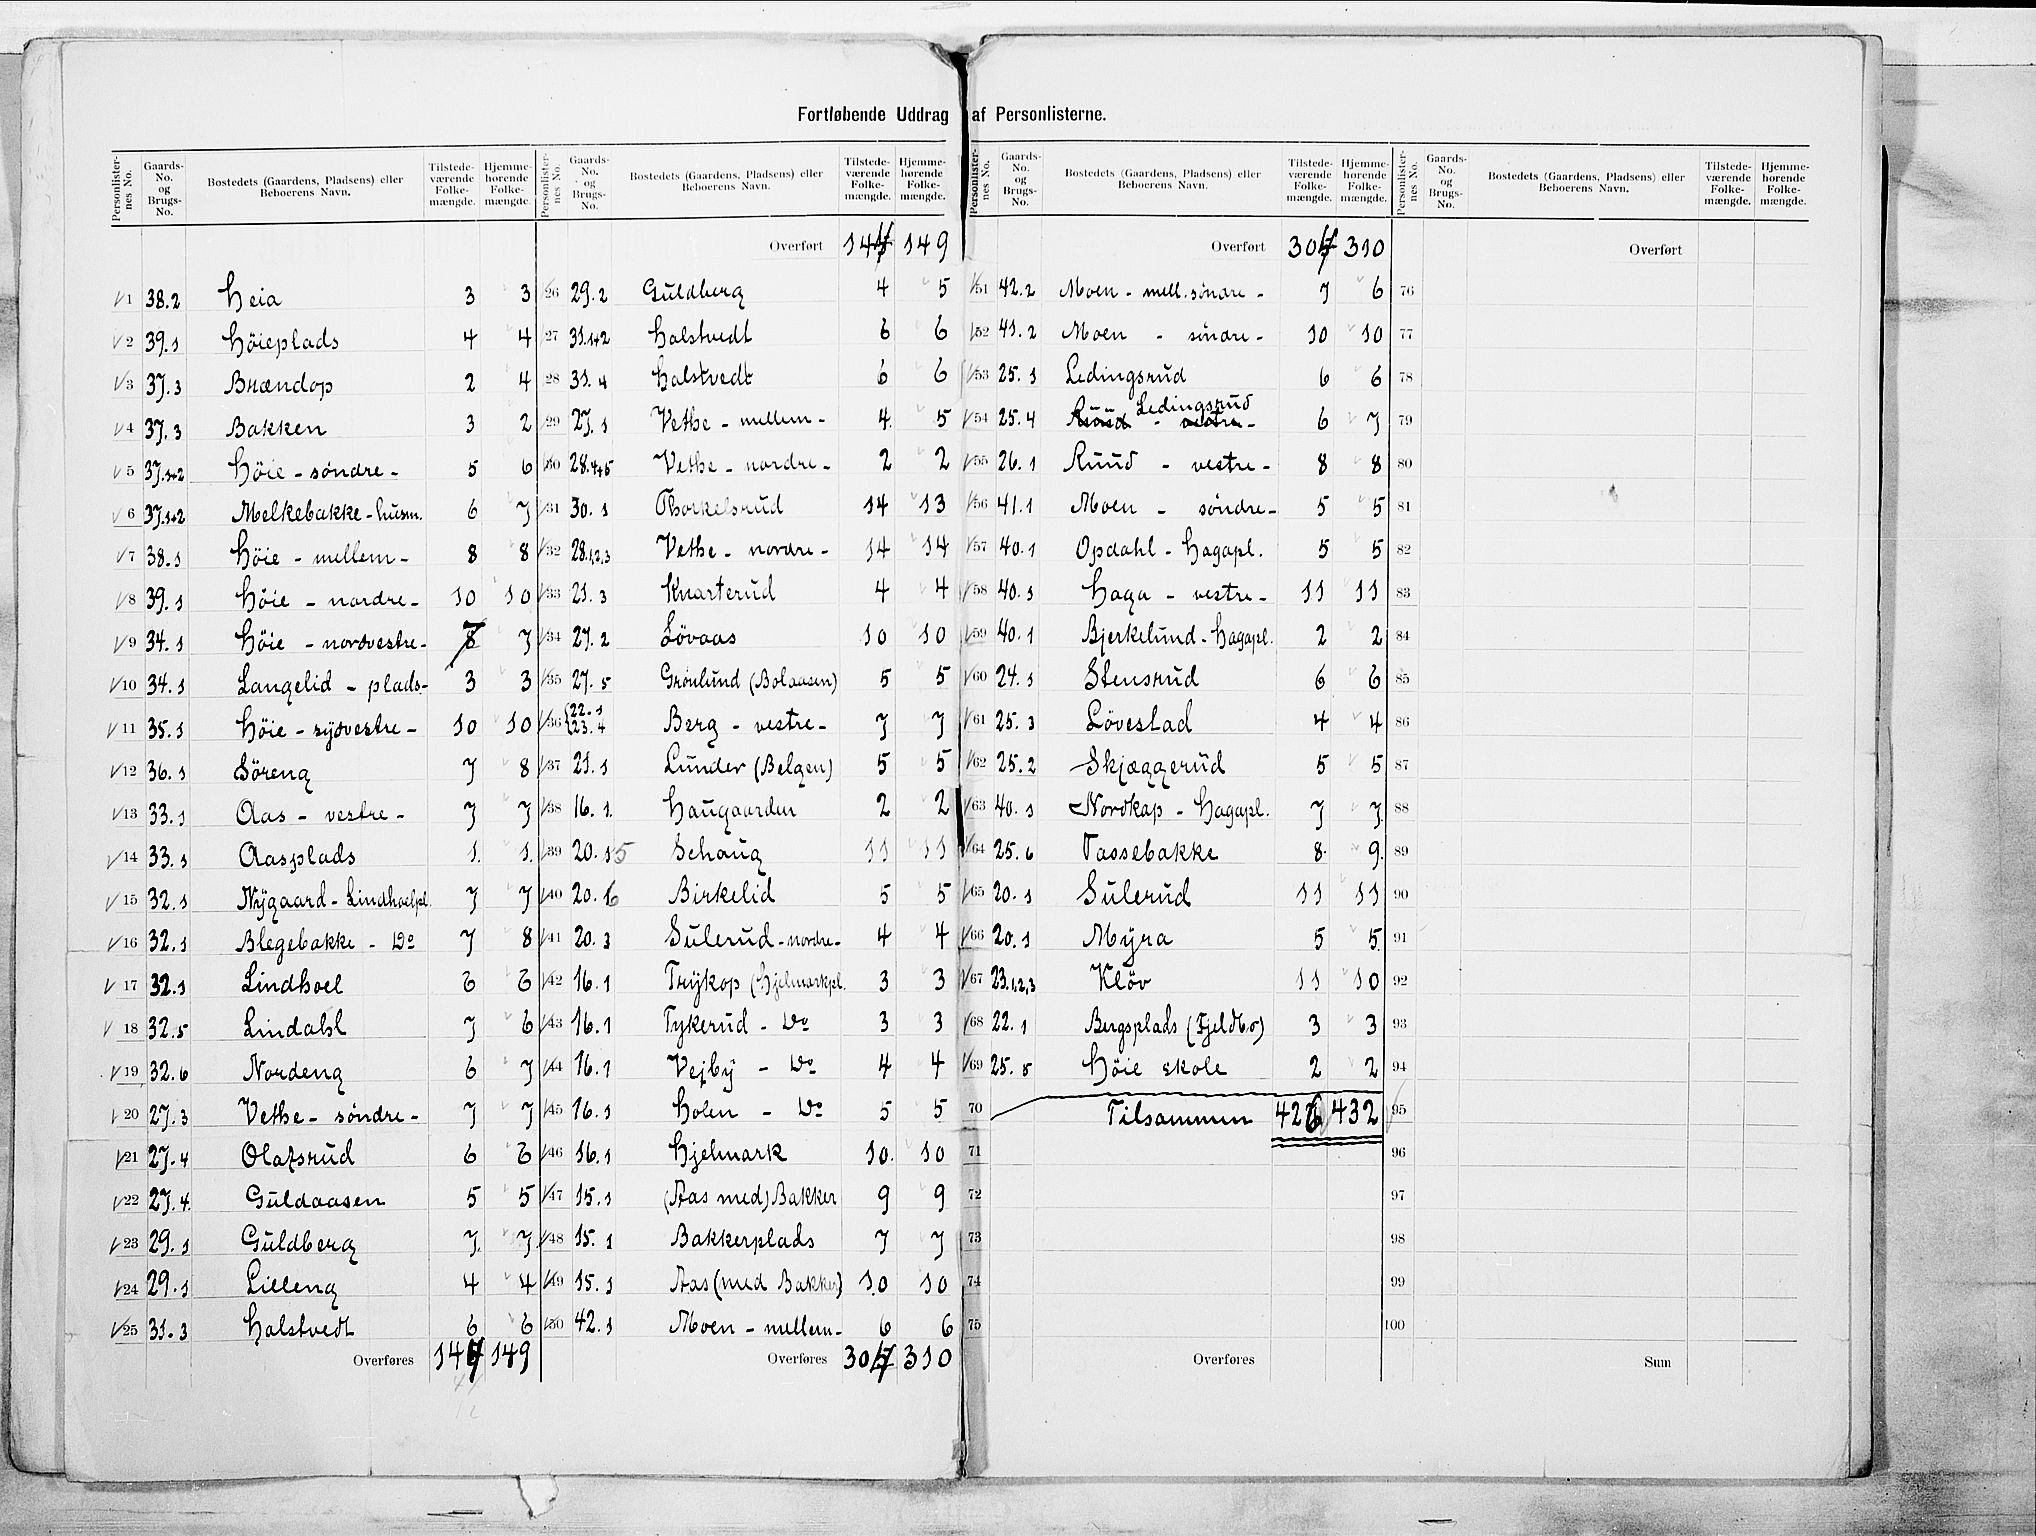 Fortløbende Uddrag af Personlisterne.
Personlister-nes No. Gaards-No. og Brugs-No. Bostedets (Gaardens, Pladsens) eller Beboerens Navn. Tilstede-værende Folke-mængde. Hjemme-hørende Folke-mængde.
1 38.2 Heia 3 3
2 39.1 Höieplads 4 4
3 37.3 Brændop 2 4
4 37.3 Bakken 3 2
5 37.1+2 Höie - söndre - 5 6
6 37.1+2 Melkebakke - husm. 6 7
7 38.1 Höie - mellem - 8 8
8 39.1 Höie - nordre - 10 10
9 34.1 Höie - nordvestre - 7 7
10 34.1 Langelid - plads - 3 3
11 35.1 Höie - sydvestre - 10 10
12 36.1 Söreng 7 8
13 33.1 Aas - vestre - 7 7
14 33.1 Aasplads 1. 1.
15 32.1 Nygaard - Lindhoelpl. 7 7
16 32.1 Blegebakke - Do 7 8
17 32.1 Lindhoel 6 6
18 32.5 Lindahl 7 6
19 32.6 Nordeng 6 7
20 27.3 Vethe - söndre - 7 7
21 27.4 Olafsrud 6 6
22 27.4. Guldaasen 5 5
23 29.1 Guldberg 7. 7.
24 29.1 Lilleng 4 4
25 31.3 Halstvedt 6 6
Overføres 149
Personlister-nes No. Gaards-No. og Brugs-No. Bostedets (Gaardens, Pladsens) eller Beboerens Navn. Tilstede-værende Folke-mængde. Hjemme-hørende Folke-mængde.
Overført 149
26 29.2 Guldberg 4 5
27 31.1+2 Halstvedt 6 6
28 31.4 Halstvedt 6 6
29 27.1 Vethe - mellem - 4. 5
30 28.4+5 Vethe - nordre - 2 2
31 30.1 Thorkelsrud 14 13
32 28.1,2,3 Vethe - nordre - 14 14
33 21.3 Knarterud 4 4
34 27.2 Lövaas 10 10
35 27.5 Grönlund (Bolaasen) 5 5
36 22.1 23.4 Berg - vestre - 7 7
37 21.1 Lunder (Belgen) 5 5
38 16.1. Haugaarden 2 2
39 20.15 Schaug 11 11
40 20.6 Birkelid 5 5
41 20.3 Sulerud - nordre - 4 4
42 16.1 Trykop (Hjelmarkpl. 3 3
43 16.1 Tykerud - Do 3 3
44 16.1 Vejby - Do 4 4
45 16.1 Holen - Do 5 5
46 16.1 Hjelmark 10. 10
47 15.1 (Aas med) Bakker 9 9
48 15.1 Bakkerplads 7 7
49 15.1 Aas (med Bakker) 10 10
50 42.1 Moen - mellem - 6 6
Overføres 310
Personlister-nes No. Gaards-No. og Brugs-No. Bostedets (Gaardens, Pladsens) eller Beboerens Navn. Tilstede-værende Folke-mængde. Hjemme-hørende Folke-mængde.
Overført 310
51 42.2 Moen - mell. söndre - 7 6
52 41.2 Moen - söndre - 10 10
53 25.1 Ledingsrud 6 6
Ledingsrud
54 25.4 Ruud - vestre - 6 7
55 26.1 Ruud - vestre - 8 8
56 41.1 Moen - söndre - 5 5
57 40.1 Opdahl - Hagapl. 5 5
58 40.1 Haga - vestre - 11 11
59 40.1 Bjerkelund - Hagapl. 2 2
60 24.1 Stensrud 6 6
61 25.3 Lövestad 4 4
62 25.2 Skjæggerud 5 5
63 40.1 Nordkap - Hagapl. 7 7
64 25.6 Tassebakke 8 9
65 20.1 Sulerud 11 11
66 20.1 Myra 5 5
67 23.1,2,3 Klöv 11 10
68 22.1 Bergsplads (Fjeldbo) 3 3
69 25.5 Höie skole 2 2
70 Tilsammen 426 432
71
72
73
74
75
Overføres
Personlister-nes No. Gaards-No. og Brugs-No. Bostedets (Gaardens, Pladsens) eller Beboerens Navn. Tilstede-værende Folke-mængde. Hjemme-hørende Folke-mængde.
Overført
76
77
78
79
80
81
82
83
84
85
86
87
88
89
90
91
92
93
94
95
96
97
98
99
100
Sum